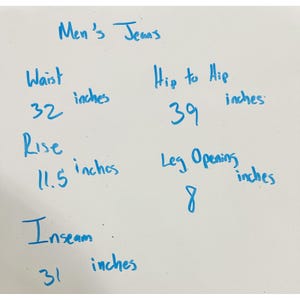 Men's Jeans
Waist
32 inches
Hip to Hip
39 inches
Rise
11.5 inches
Leg Opening
8 inches
Inseam
31 inches